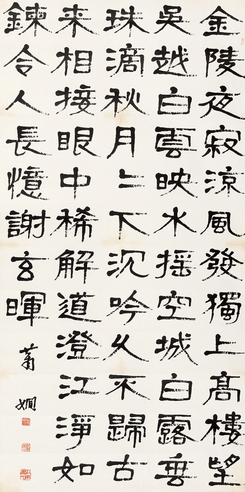 金陵夜寂涼風發獨上高樓望
吳越白雲映水搖空城白露垂
珠滴秋月〻下沉吟久不歸古
来相接眼中稀解道澄江淨如
鍊令人長憶謝玄暉
蕭嫻